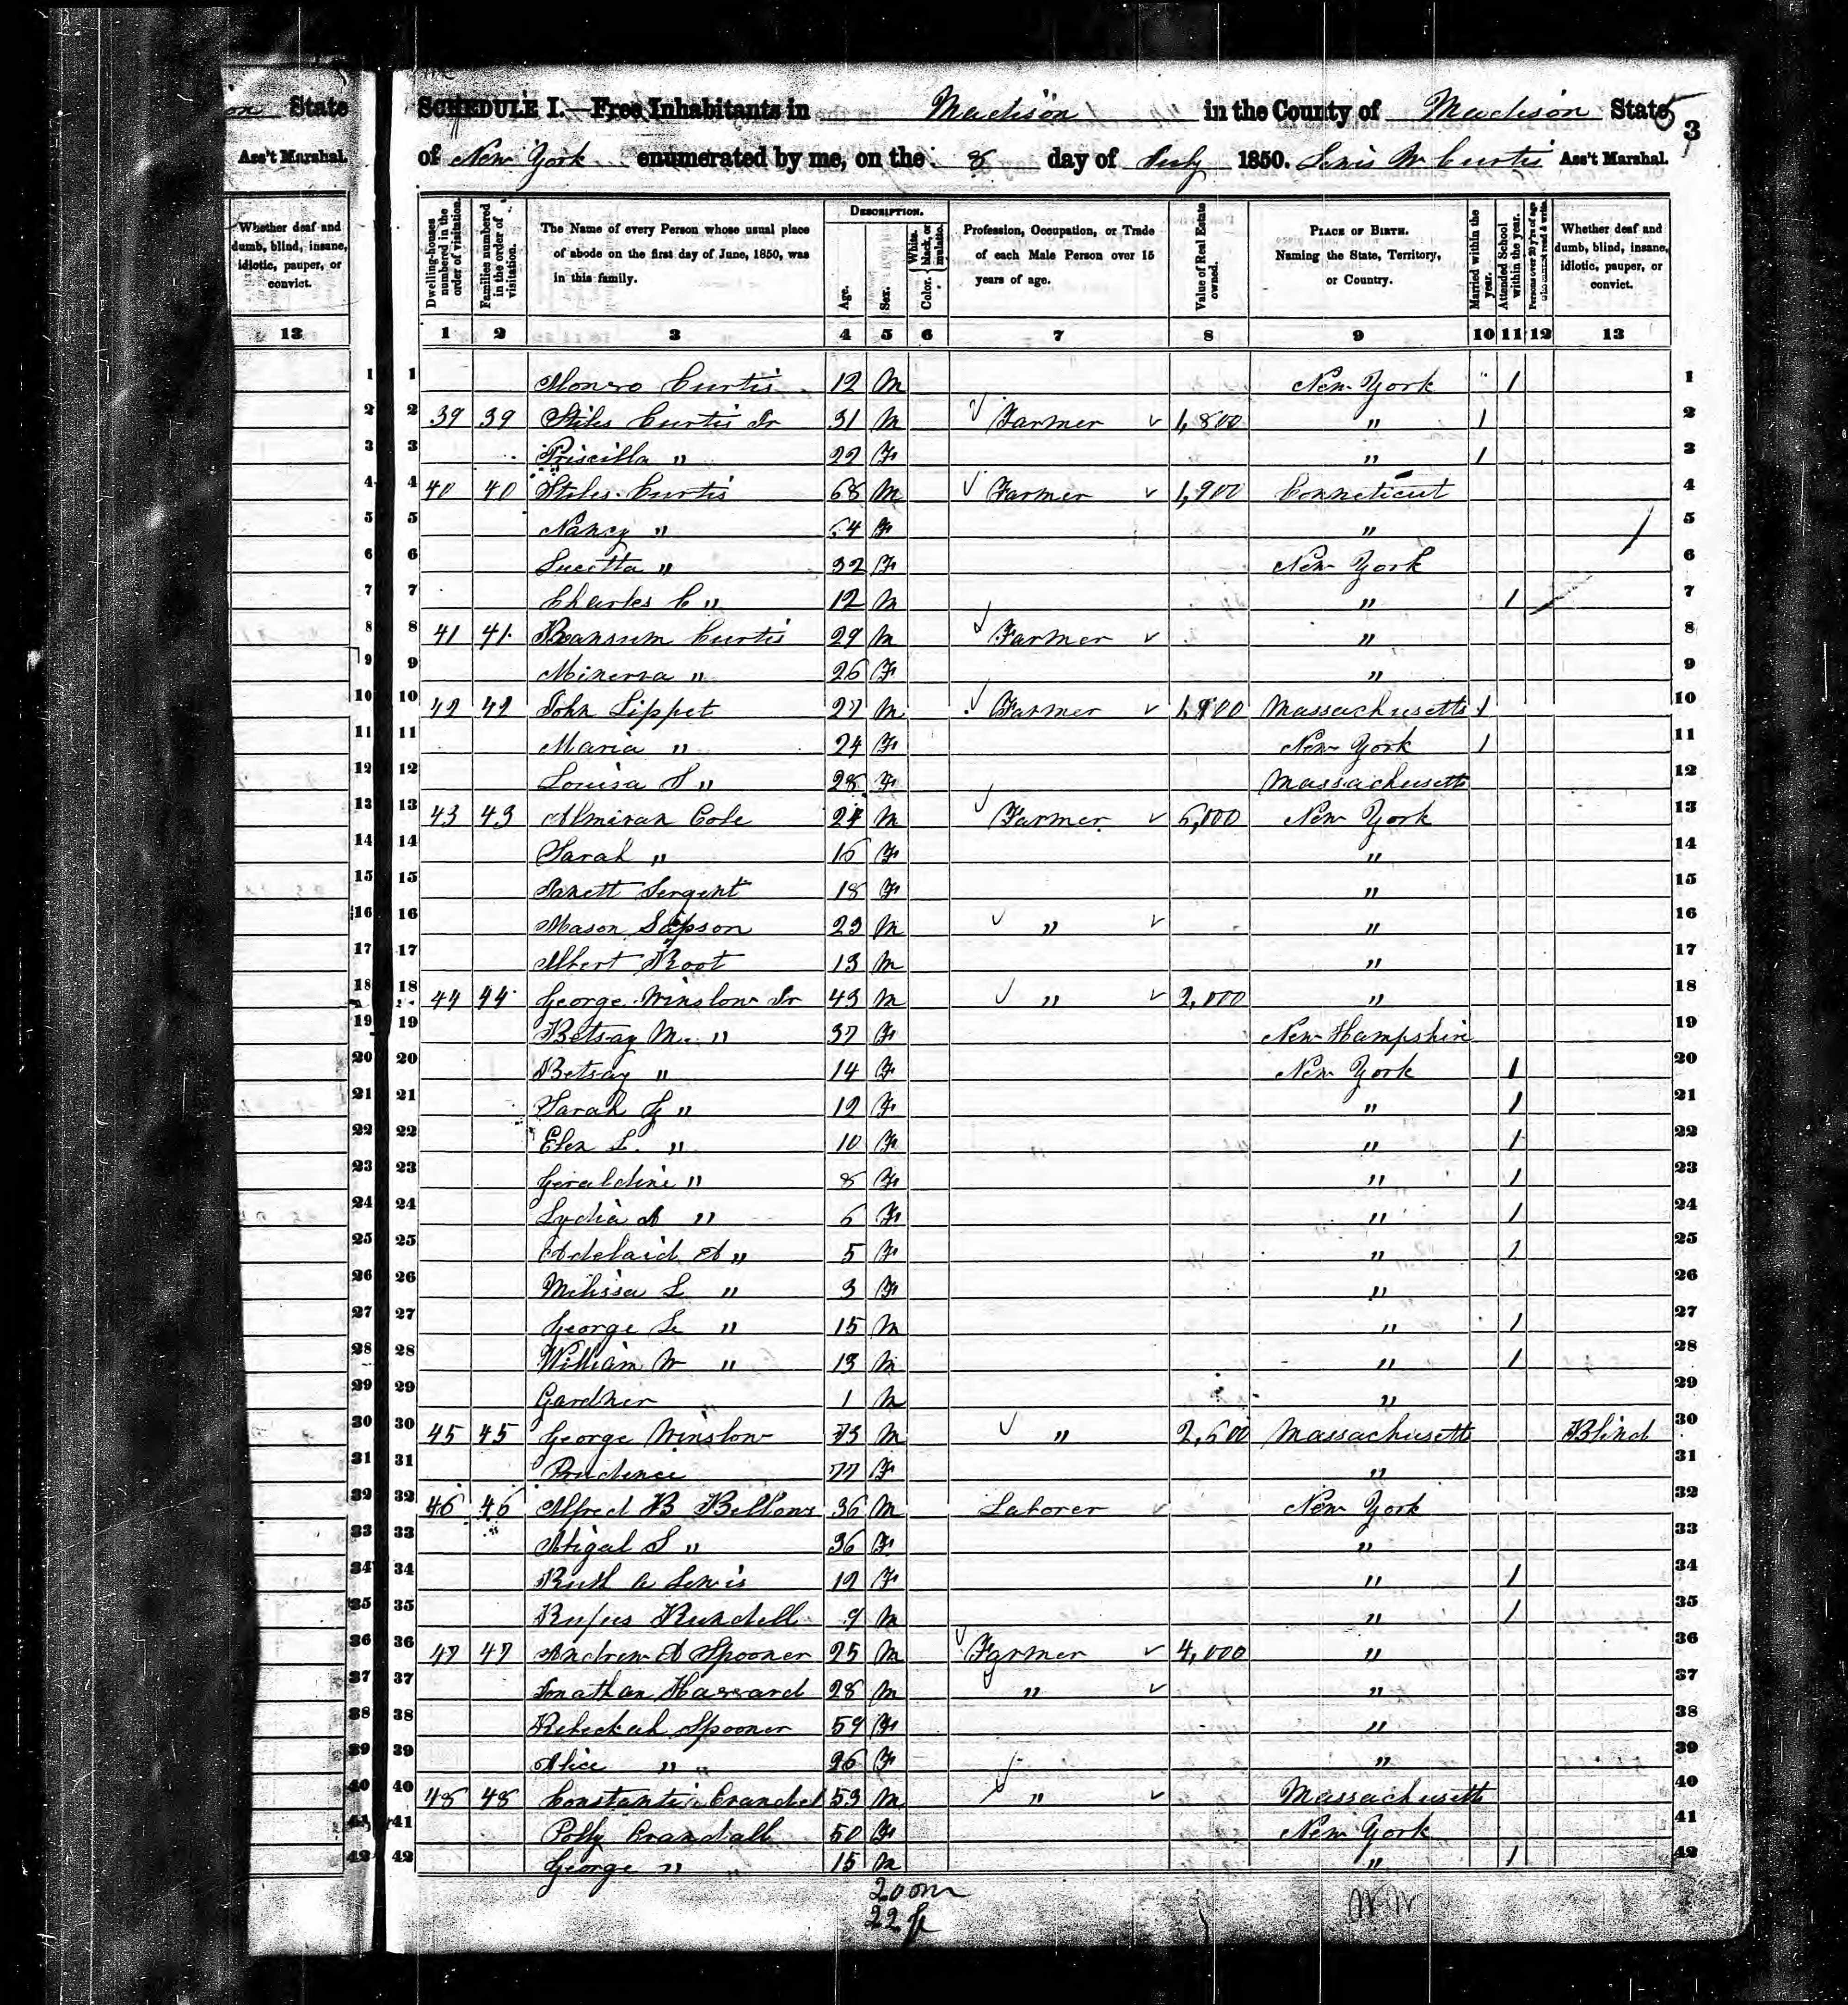 on State
Ass't Marshal.
Whether deaf and
dumb, blind, insane,
idiotic, pauper, or
convict.
13
SCHEDULE I.—Free Inhabitants in Madison in the County of Madison State 3
of New York enumerated by me, on the 8 day of July 1850. Lewis W Curtis Ass't Marshal.
Dwelling-houses numbered in the order of visitation.
Families numbered in the order of visitation.
The Name of every Person whose usual place of abode on the first day of June, 1850, was in this family.
DESCRIPTION.
Age.
Sex.
Color. { White, black, or mulatto.
Profession, Occupation, or Trade of each Male Person over 15 years of age.
Value of Real Estate owned.
PLACE OF BIRTH. Naming the State, Territory, or Country.
Married within the year.
Attended School within the year.
Persons over 20 y'rs of age who cannot read & write.
Whether deaf and dumb, blind, insane, idiotic, pauper, or convict.
1 2 3 4 5 6 7 8 9 10 11 12 13
1 Monro Curtis 12 M New York " 1 1
2 39 39 Stiles Curtis Jr 31 M Farmer 1,800 " 1 2
3 Priscilla " 22 F " 1 3
4 40 40 Stiles Curtis 68 M Farmer 1,900 Conneticut 4
5 Nancy " 64 F " 5
6 Lucetta " 32 F New York 6
7 Charles C " 12 M " 1 7
8 41 41 Ransum Curtis 29 M Farmer " 8
9 Minerva " 26 F " 9
10 42 42 John Lippet 27 M Farmer 1,900 Massachusetts 1 10
11 Maria " 24 F New York 1 11
12 Louisa S " 28 F Massachusetts 12
13 43 43 Almiran Cole 24 M Farmer 6,000 New York 13
14 Sarah " 16 F " 14
15 Janett Sergent 18 F " 15
16 Mason 23 M " " 16
17 Albert Root 13 M " 17
18 44 44 George Winslow Jr 43 M " 2,000 " 18
19 Betsay M. " 37 F New Hampshire 19
20 Betsay " 14 F New York 1 20
21 Sarah G " 12 F " 1 21
22 Elen L. " 10 F " 1 22
23 Geraldine " 8 F " 1 23
24 Lydia A " 6 F " 1 24
25 Adelaid A " 5 F " 1 25
26 Milissa L " 3 F " 26
27 George L " 15 M " 1 27
28 William W " 13 M " 1 28
29 Gardner " 1 M " 29
30 45 45 George Winslow 73 M " 2,600 Massachusetts Blind 30
31 Prudence 77 F " 31
32 46 46 Alfred B Bellows 36 M Laborer New York 32
33 Abigal S " 36 F " 33
34 Ruth A Lewis 12 F " 1 34
35 Rufus Rundell 9 M " 1 35
36 47 47 Andrew A Spooner 25 M Farmer 4,000 " 36
37 Jonathan Hazzard 28 M " " 37
38 Rebeckah Spooner 59 F " 38
39 Alice " " 26 F " 39
40 48 48 Constantin Crandel 53 M " Massachusetts 40
41 Polly Crandall 50 F New York 41
42 George " 15 M " 1 42
20 m
22 f